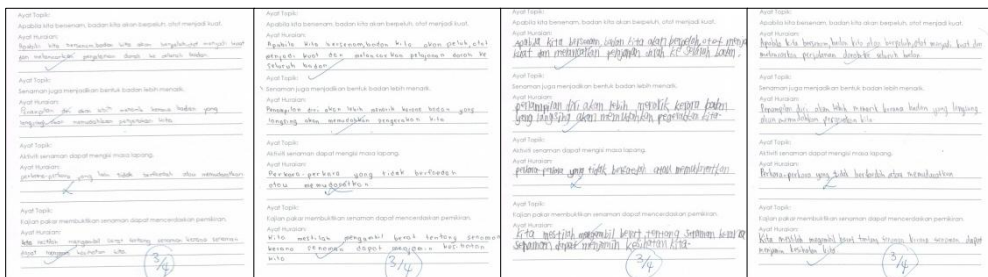 Ayat Topik:
Apabila kita bersenam, badan kita akan berpeluh, otot menjadi kuat.
Ayat Huraian:
Apabila kita bersenam, badan kita akan berpeluh, otot menjadi kuat
dan melancarkan perjalanan darah ke seluruh badan.
Ayat Topik:
Senaman juga menjadikan bentuk badan lebih menarik.
Ayat Huraian:
Penampilan diri akan lebih menarik kerana badan yang
langsing akan memudahkan pergerakan kita.
Ayat Topik:
Aktiviti senaman dapat mengisi masa lapang.
Ayat Huraian:
perkara-perkara yang tidak berfaedah atau memudaratkan
Ayat Topik:
Kajian pakar membuktikan senaman dapat mencerdaskan pemikiran.
Ayat Huraian:
kita mestilah mengambil berat tentang senaman kerana senaman
dapat menjamin kesihatan kita.
3/4
Ayat Topik:
Apabila kita bersenam, badan kita akan berpeluh, otot menjadi kuat.
Ayat Huraian:
Apabila kita bersenam, badan kita akan peluh, otot
menjadi kuat dan melancarkan perjalanan darah ke
seluruh badan.
Ayat Topik:
Senaman juga menjadikan bentuk badan lebih menarik.
Ayat Huraian:
Penampilan diri akan lebih menarik kerana badan yang
langsing akan memudahkan pergerakan kita
Ayat Topik:
Aktiviti senaman dapat mengisi masa lapang.
Ayat Huraian:
Perkara-perkara yang tidak berfaedah
atau memudaratkan.
Ayat Topik:
Kajian pakar membuktikan senaman dapat mencerdaskan pemikiran.
Ayat Huraian:
Kita mestilah mengambil berat tentang senaman
kerana senaman dapat menjamin kesihatan
kita
3/4
Ayat Topik:
Apabila kita bersenam, badan kita akan berpeluh, otot menjadi kuat.
Ayat Huraian:
Apabila kita bersenam badan kita akan berpeluh, otot menjadi
kuat dan melancarkan perjalanan darah ke seluruh badan.
Ayat Topik:
Senaman juga menjadikan bentuk badan lebih menarik.
Ayat Huraian:
penampilan diri akan lebih menarik kerana badan
yang langsing akan memudahkan pergerakan kita.
Ayat Topik:
Aktiviti senaman dapat mengisi masa lapang.
Ayat Huraian:
perkara-perkara yang tidak berfaedah atau memudaratkan
Ayat Topik:
Kajian pakar membuktikan senaman dapat mencerdaskan pemikiran.
Ayat Huraian:
Kita mestilah mengambil berat tentang senaman kerana
senaman dapat menjamin kesihatan kita.
3/4
Ayat Topik:
Apabila kita bersenam, badan kita akan berpeluh, otot menjadi kuat.
Ayat Huraian:
Apabila kita bersenam, badan kita akan berpeluh, otot menjadi kuat dan
melancarkan perjalanan darah ke seluruh badan.
Ayat Topik:
Senaman juga menjadikan bentuk badan lebih menarik.
Ayat Huraian:
Penampilan diri akan lebih menarik kerana badan yang langsing
akan memudahkan pergerakan kita.
Ayat Topik:
Aktiviti senaman dapat mengisi masa lapang.
Ayat Huraian:
Perkara-perkara yang tidak berfaedah atau memudaratkan
Ayat Topik:
Kajian pakar membuktikan senaman dapat mencerdaskan pemikiran.
Ayat Huraian:
Kita mestilah mengambil berat tentang senaman kerana senaman dapat
menjamin kesihatan kita
3/4